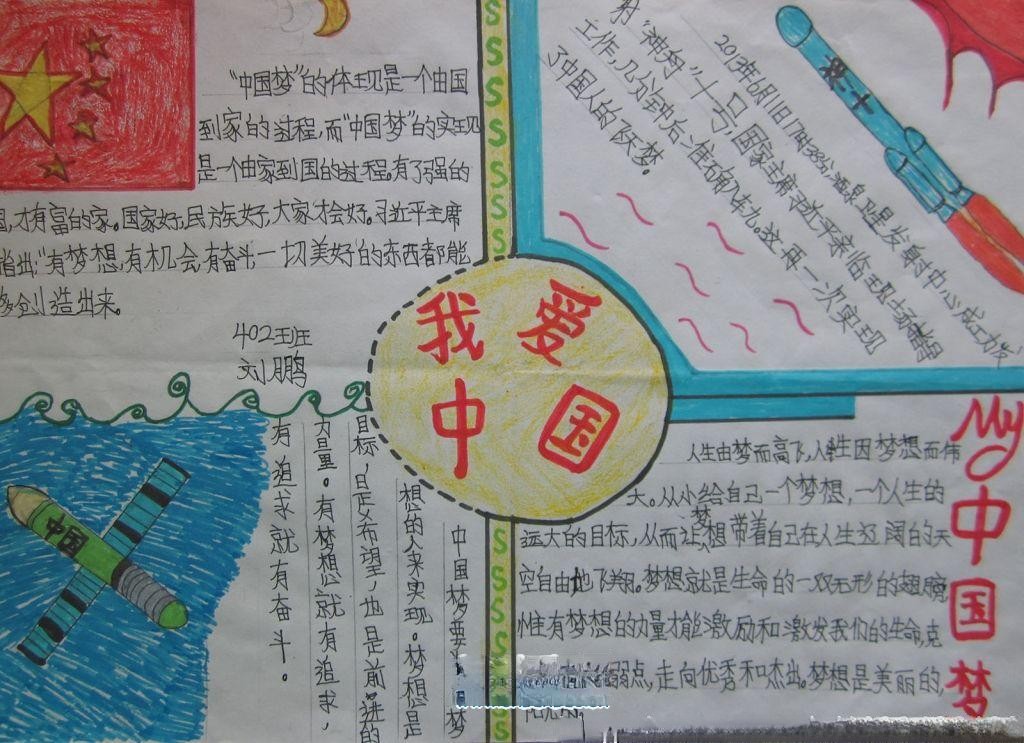 "中国梦"的体现是一个由国
到家的过程,而"中国梦"的实现
是一个由家到国的过程。有了强的
国,才有富的家。国家好,民族好,大家才会好。习近平主席
指出:"有梦想,有机会,有奋斗一切美好的东西都能
够创造出来。
402班
刘鹏
2013年6月11日17时38分酒泉卫星发射中心成功发
射"神舟"十号,国家主席习近平亲临现场指导
工作,几分钟后,准确入轨。这再一次实现
了中国人的飞跃梦。
神十
我爱
中国
SSSSSSSS
中国
中国梦要 国梦
想的人来实现。梦想是
目标,是希望,也是前进的
力量。有梦想就有追求,
有追求就有奋斗。
SSSSSS
My中国梦
人生由梦而高飞,人性因梦想而伟
大。从小给自己一个梦想,一个人生的
远大的目标,从而让梦想带着自己在人生辽阔的天
空自由地飞翔。梦想就是生命的一双无形的翅膀
惟有梦想的力量才能激励和激发我们的生命,克
弱点,走向优秀和杰出。梦想是美丽的,